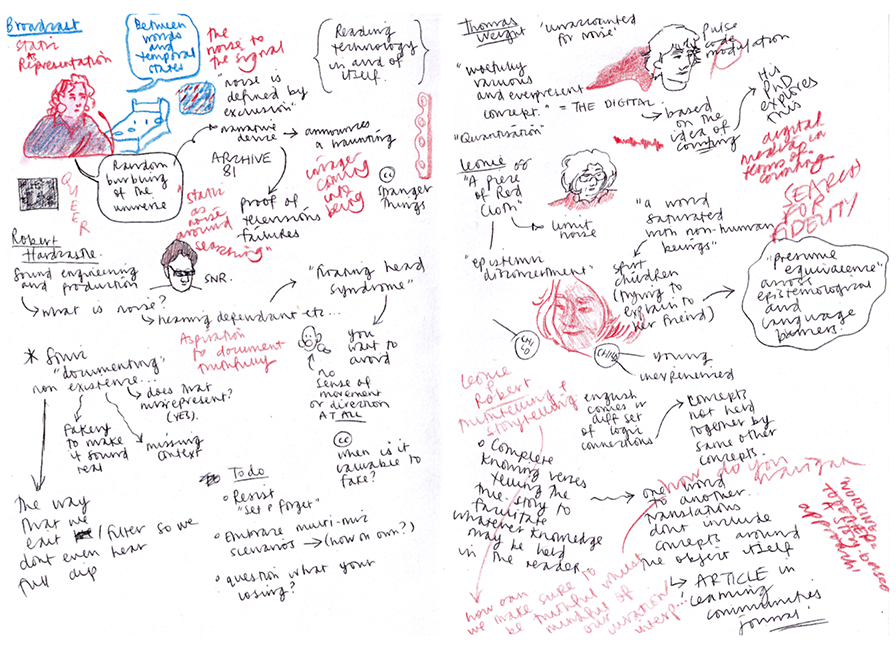 Broadcast
Static
Representation
Between
words
and
temporal
states
the
noise to
the signal
"noise is
defined by
exclusion"
(Reading
technology
in and of
itself.)
narrative
device → announces
a haunting
ARCHIVE
81
Random
burbling
of the
universe
QUEER
"static
as
noise
around
searching"
proof of
televisions
failures
images
coming
into
being
cc
Stranger
Things
Robert
Hardcastle.
Sound engineering
and production
SNR.
→ what is noise?
→ hearing dependant etc...
"Floating head
syndrome"
you
want to
avoid
Aspiration
to document
truthfully
no
sense of
movement
or direction
AT ALL
*
"documenting"
non existence...
→ does that
misrepresent?
(YES).
Fakery
to make
it sound
real
missing
context
cc
when is it
valuable to
fake?
The way
that we
edit / filter so we
dont even hear
full
Todo
Resist
"set & forget"
Embrace multi-mic
scenarios → (how on own?)
question what your
losing?
Thomas
Weight
'unaccounted
for noise'
Pulse
code
modulation
"woefully
various
and everpresent
concept." = THE DIGITAL.
"Quantisation"
→ based
on the
idea of
counting
His
PhD
explores
this
digital
media in
terms of
counting
(SEARCH)
FOR
FIDELITY
Leonie
"A Piece
of Red
Cloth"
→ limit
noise
"epistemic
disconcertment"
"a world
saturated
with non-human
beings"
spirit
children
(trying to
explain to
her friend)
"presume
equivalence"
across
epistemological
and
language
barriers.
young
inexperienced
Leonie
&
Robert
storytelling
english
comes w
diff set
of logic
connections
concepts
not held
together by
same other
concepts.
Complete
knowing verses
telling the
true story to
facilitate
whatever knowledge
may be held
in the reader
one word
to another.
translations
dont include
concepts around
the object itself
how do you
navigate
WORKING
TOGETHER
a story-based
approach!
how can
we make sure to
be truthful whilst
mindful of
our
curation/
interp...
↳ ARTICLE in
learning
communities
journal.